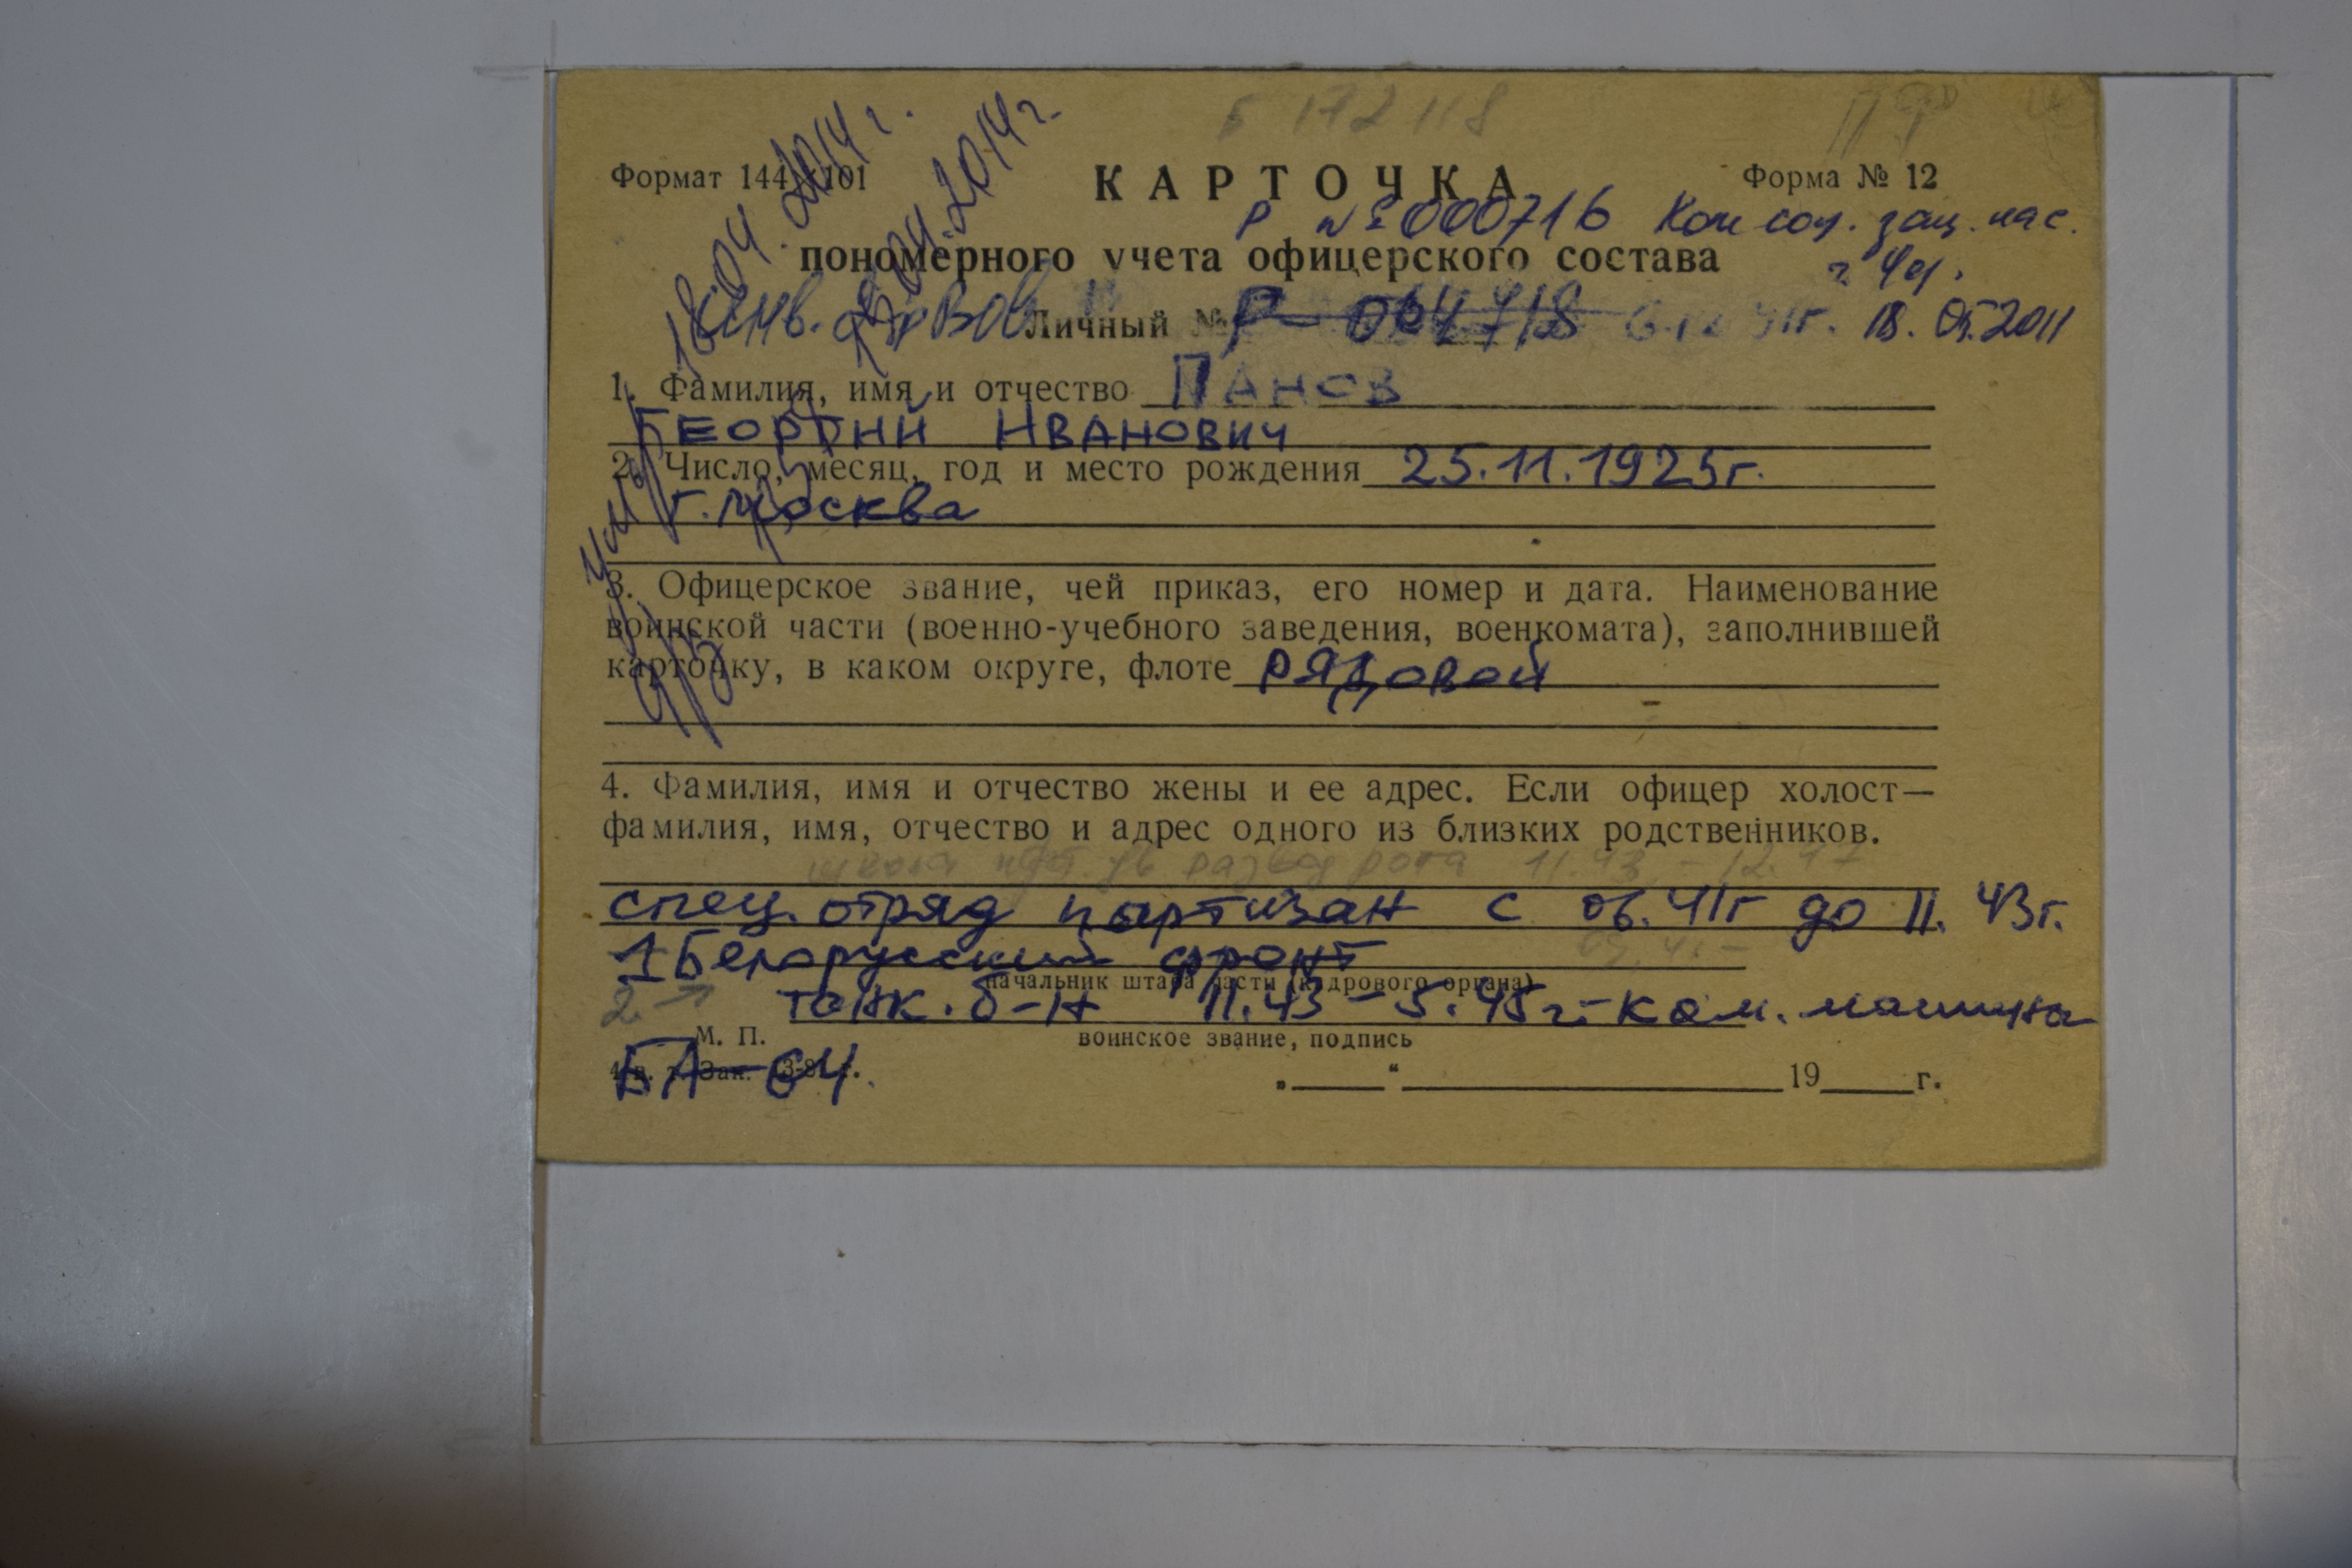 Б 172118
Формат 144×101
КАРТОЧКА
Форма № 12
Р №000716 Ком соц. защ. нас.
пономерного учета офицерского состава
Инв.
Личный № Р-064718
18.05.2011
1. Фамилия, имя и отчество ПАНОВ
ГЕОРГИЙ ИВАНОВИЧ
2. Число, месяц, год и место рождения 25.11.1925г.
г. Москва
18.04.2014г.
04.2014г.
умер
3. Офицерское звание, чей приказ, его номер и дата. Наименование
воинской части (военно-учебного заведения, военкомата), заполнившей
карточку, в каком округе, флоте РЯДОВОЙ
4. Фамилия, имя и отчество жены и ее адрес. Если офицер холост—
фамилия, имя, отчество и адрес одного из близких родственников.
рота 11.43 - 12.47
спец. отряд партизан с 06.41г до 11.43г.
1 Белорусский фронт
начальник штаба части (кадрового органа)
танк. б-н 11.43-5.45г.-ком. машины
М. П.
воинское звание, подпись
БА-64.
Зак.
„____“ ____________ 19____г.